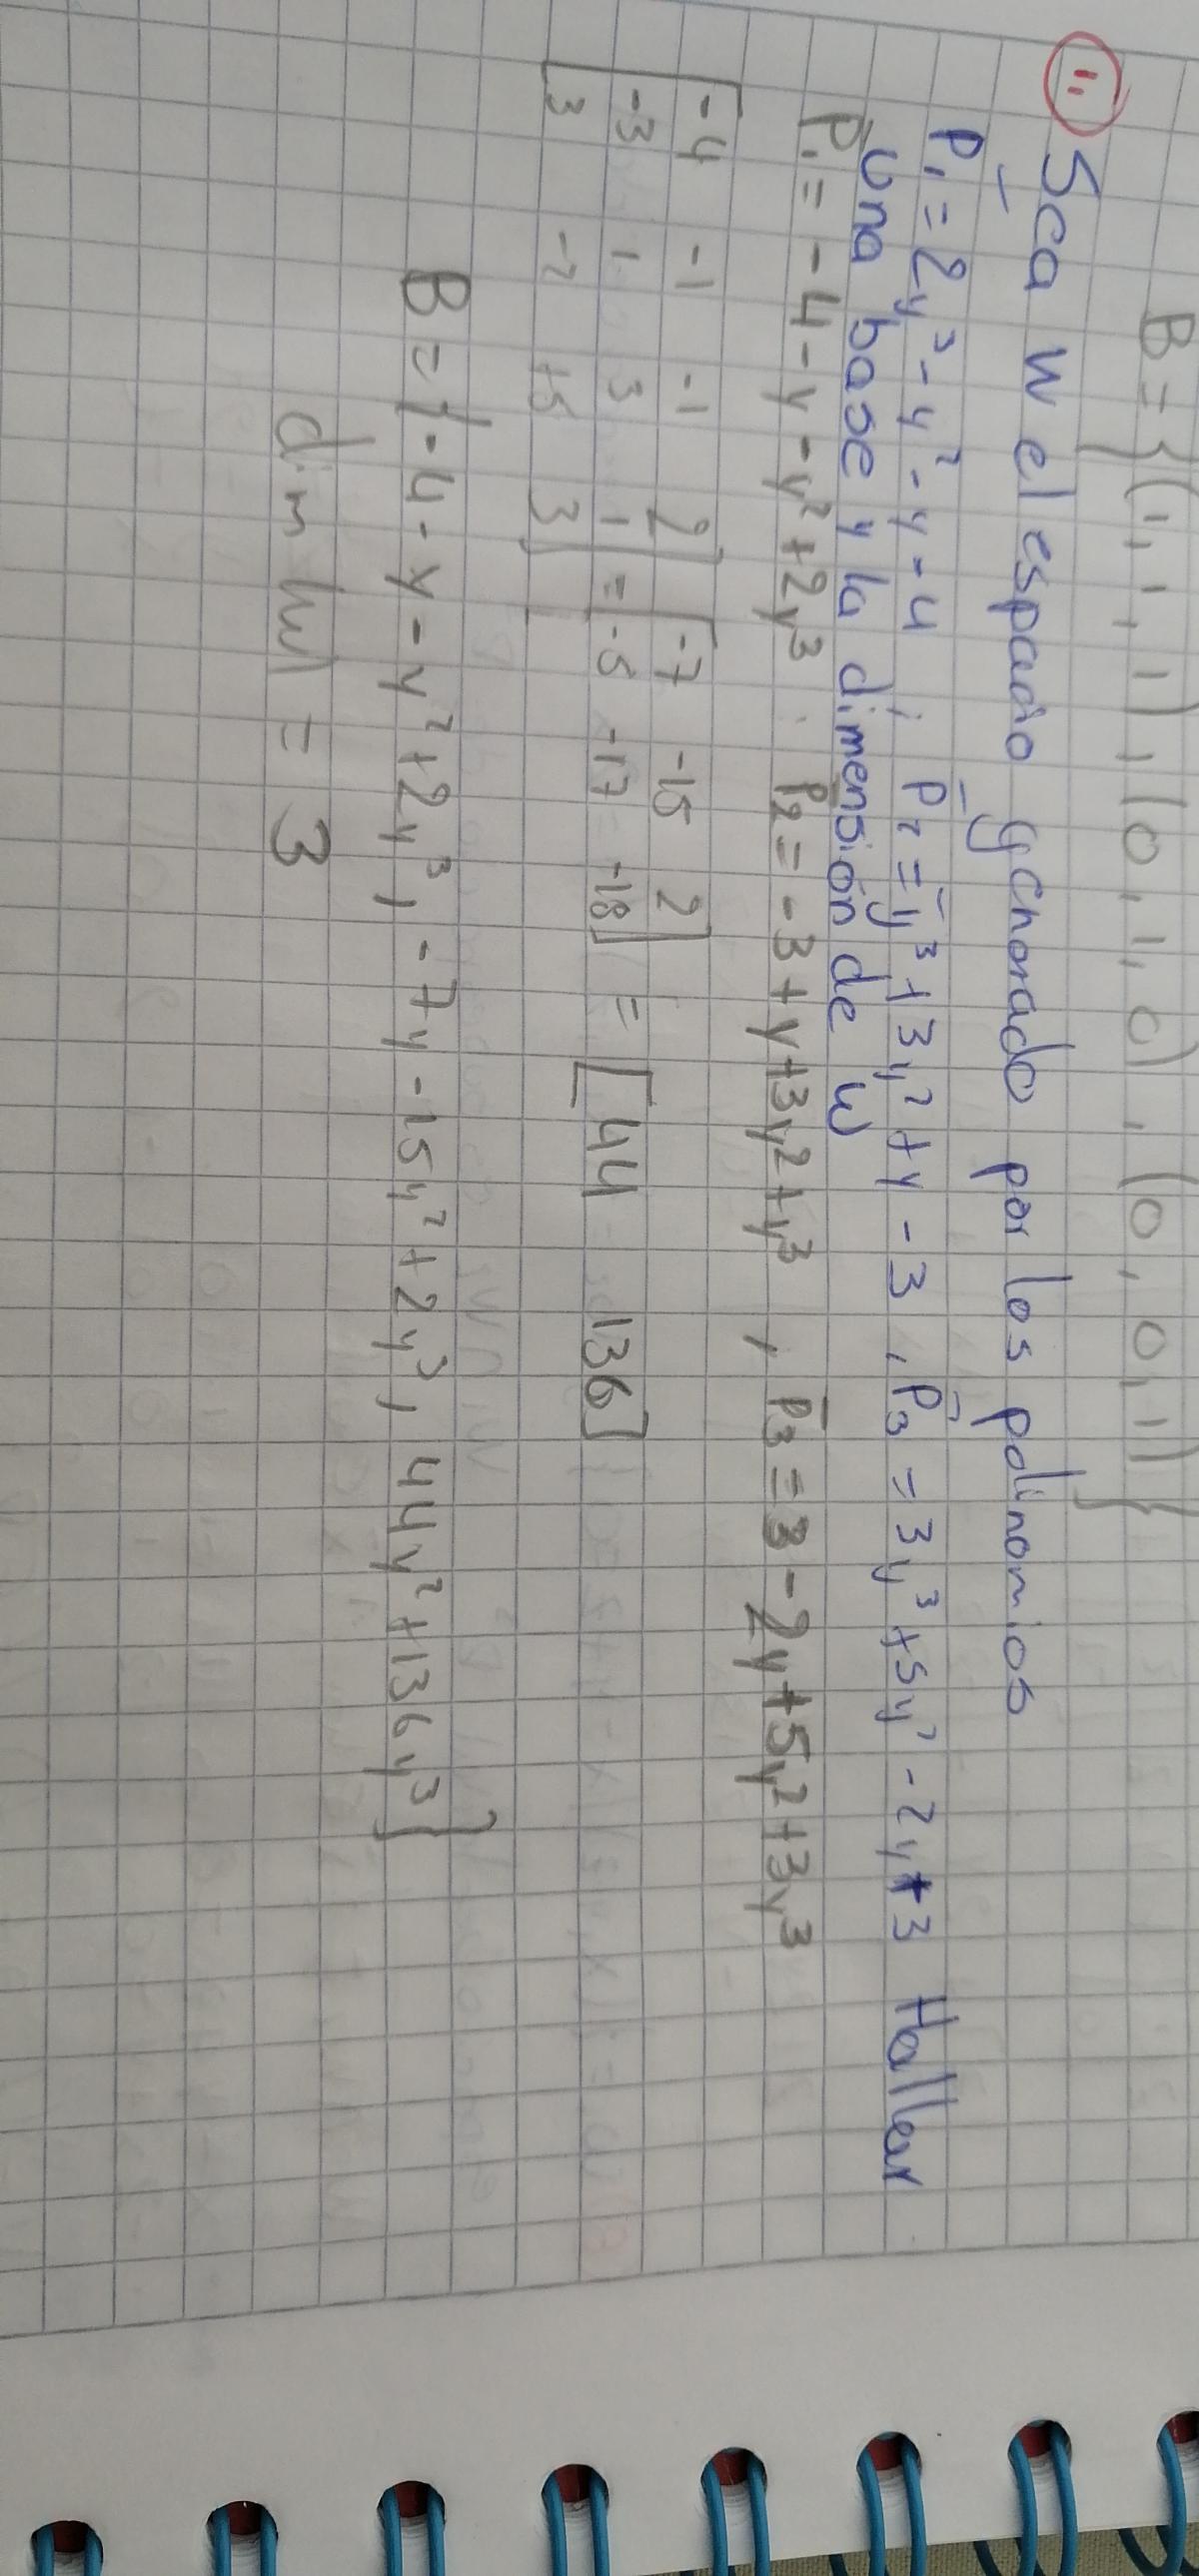 B = {(1, 1, 1), (0, 1, 0), (0, 0, 1)}
11 Sea W el espacio generado por los polinomios
P₁ = 2y³ - y² - y - 4 ; P₂ = y³ + 3y² + y - 3 , P₃ = 3y³ + 5y² - 2y + 3 Hallar
una base y la dimensión de W
P₁ = -4 - y - y² + 2y³ P₂ = -3 + y + 3y² + y³ , P₃ = 3 - 2y + 5y² + 3y³
[-4 -1 -1 2] [-7 -15 2]
-3 1 3 1 = -5 -17 -18 = [44 136]
3 -2 +5 3
B = {-4 - y - y² + 2y³, -7y - 15y² + 2y³, 44y² + 136y³}
dim W = 3